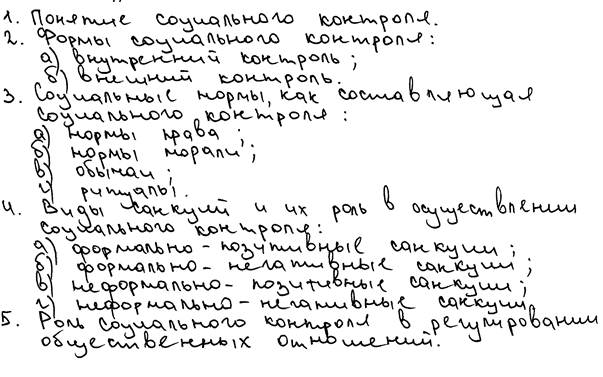 1. Понятие социального контроля.
2. Формы социального контроля:
а) внутренний контроль;
б) внешний контроль.
3. Социальные нормы, как составляющая
социального контроля:
а) нормы права;
б) нормы морали;
в) обычаи;
г) ритуалы.
4. Виды санкций и их роль в осуществлении
социального контроля:
а) формально-позитивные санкции;
б) формально-негативные санкции;
в) неформально-позитивные санкции;
г) неформально-негативные санкции
5. Роль социального контроля в регулировании
общественных отношений.